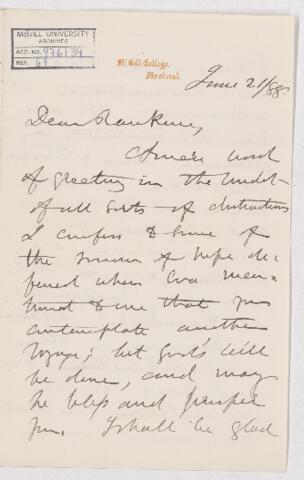 McGILL UNIVERSITY
ARCHIVES
ACC. NO. 976/34
REF. 69
McGill College,
Montreal.
June 21/88
Dear Rankine,
A mere word
of greeting in the midst
of all sorts of distractions
I confess to some of
the of hope de-
ferred when Eva men-
tioned to me that you
contemplate another
voyage; but God's will
be done, and may
he bless and prosper
you. I shall be glad